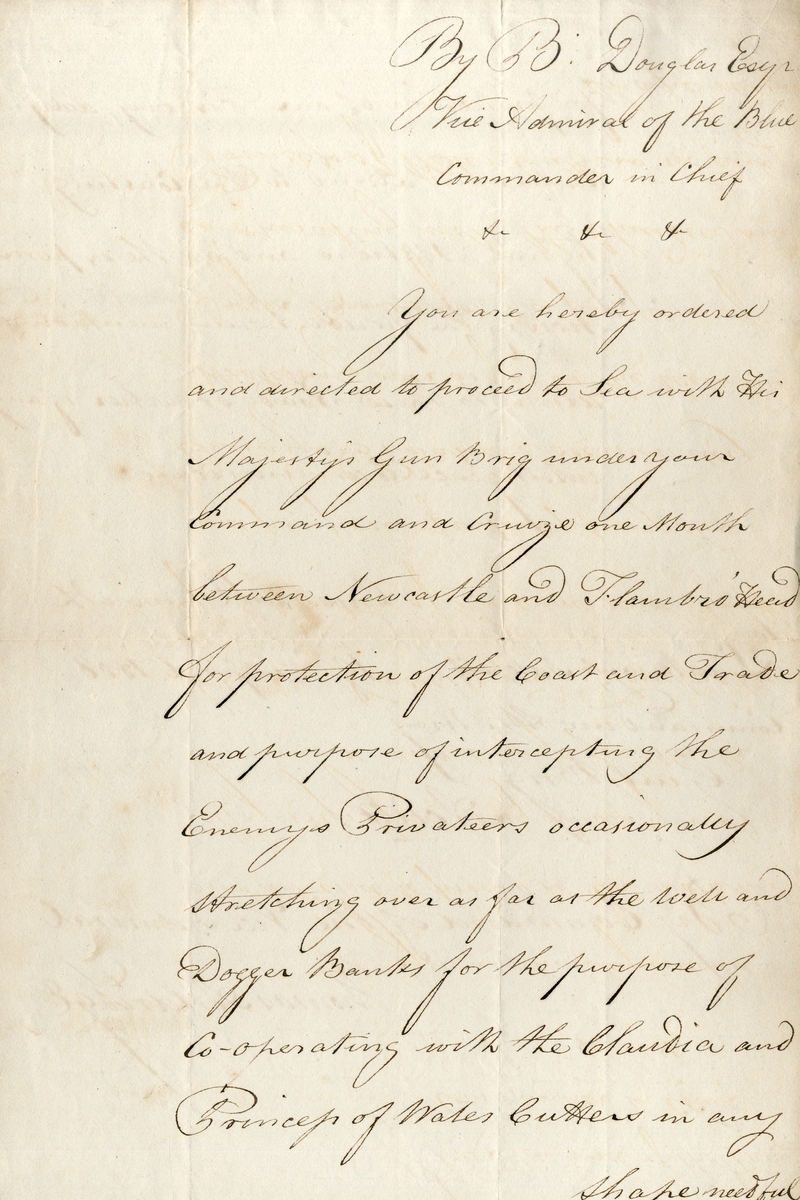 By B: Douglas Esqr
Vice Admiral of the Blue
Commander in Chief
&c &c &c
You are hereby ordered
and directed to proceed to Sea with His
Majesty's Gun Brig under your
Command and Cruize one Month
between Newcastle and Flambro' Head
for protection of the Coast and Trade
and purpose of intercepting the
Enemys Privateers occasionally
stretching over as far as the Well and
Dogger Banks for the purpose of
Co-operating with the Claudia and
Princess of Wales Cutters in any
shape needful